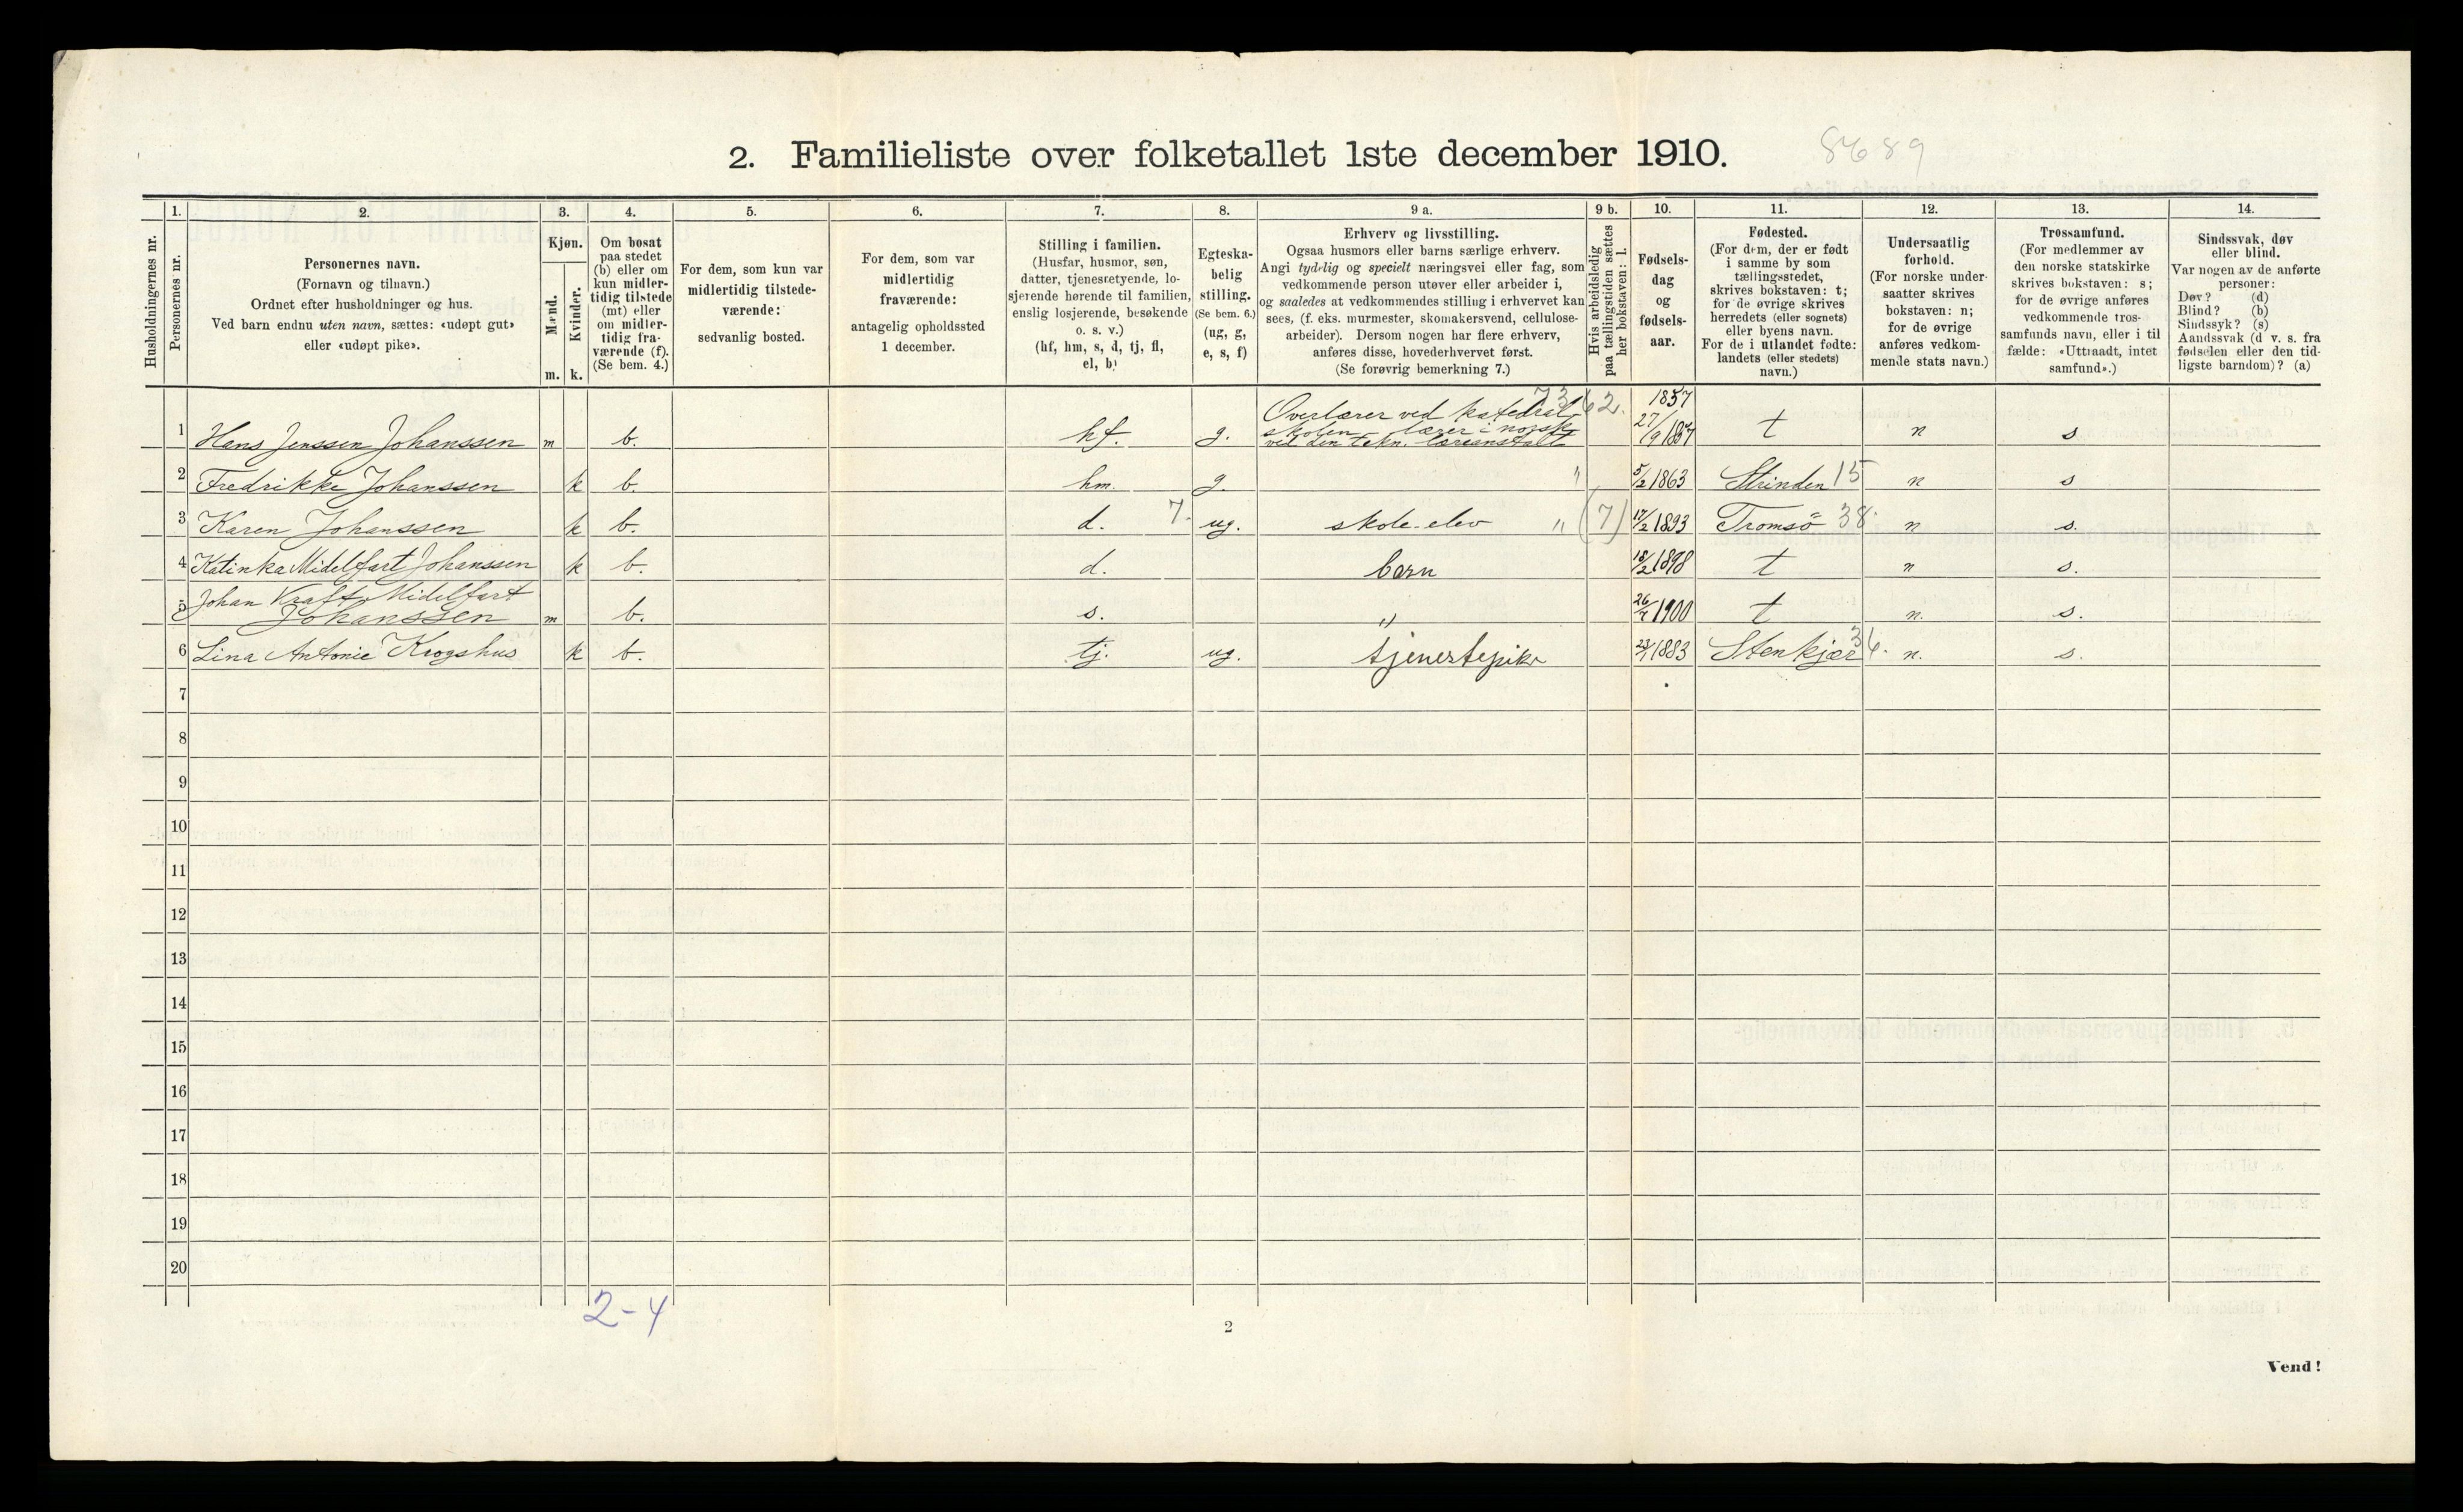 2. Familieliste over folketallet 1ste december 1910.
8689
1. 2. 3. 4. 5. 6. 7. 8. 9 a. 9 b. 10. 11. 12. 13. 14.
Husholdningernes nr.
Personernes nr.
Personernes navn.
(Fornavn og tilnavn.)
Ordnet efter husholdninger og hus.
Ved barn endnu uten navn, sættes: «udøpt gut»
eller «udøpt pike».
Kjøn.
Mænd.
Kvinder.
m. k.
Om bosat
paa stedet
(b) eller om
kun midler-
tidig tilstede
(mt) eller
om midler-
tidig fra-
værende (f).
(Se bem. 4.)
For dem, som kun var
midlertidig tilstede-
værende:
sedvanlig bosted.
For dem, som var
midlertidig
fraværende:
antagelig opholdssted
1 december.
Stilling i familien.
(Husfar, husmor, søn,
datter, tjenestetyende, lo-
sjerende hørende til familien,
enslig losjerende, besøkende
o. s. v.)
(hf, hm, s, d, tj, fl,
el, b)
Egteska-
belig
stilling.
(Se bem. 6.)
(ug, g,
e, s, f)
Erhverv og livsstilling.
Ogsaa husmors eller barns særlige erhverv.
Angi tydelig og specielt næringsvei eller fag, som
vedkommende person utøver eller arbeider i,
og saaledes at vedkommendes stilling i erhvervet kan
sees, (f. eks. murmester, skomakersvend, cellulose-
arbeider). Dersom nogen har flere erhverv,
anføres disse, hovederhvervet først.
(Se forøvrig bemerkning 7.)
Hvis arbeidsledig
paa tællingstiden sættes
her bokstaven: l.
Fødsels-
dag
og
fødsels-
aar.
Fødested.
(For dem, der er født
i samme by som
tællingsstedet,
skrives bokstaven: t;
for de øvrige skrives
herredets (eller sognets)
eller byens navn.
For de i utlandet fødte:
landets (eller stedets)
navn.)
Undersaatlig
forhold.
(For norske under-
saatter skrives
bokstaven: n;
for de øvrige
anføres vedkom-
mende stats navn.)
Trossamfund.
(For medlemmer av
den norske statskirke
skrives bokstaven: s;
for de øvrige anføres
vedkommende tros-
samfunds navn, eller i til
fælde: «Uttraadt, intet
samfund».)
Sindssvak, døv
eller blind.
Var nogen av de anførte
personer:
Døv? (d)
Blind? (b)
Sindssyk? (s)
Aandssvak (d v. s. fra
fødselen eller den tid-
ligste barndom)? (a)
Overlærer ved katedral- 1857
1 Hans Jenssen Johanssen m b. hf. g. skolen - lærer i norsk 27/9 1857 t n s
ved den tekn. læreanstalt
2 Fredrikke Johanssen k b. hm. g. " 5/2 1863 Strinden 15 n s
3 Karen Johanssen k b. d. 7. ug. skole-elev " (7) 17/2 1893 Tromsö 38. n s.
4 Katinka Midelfart Johanssen k b. d. barn 18/2 1898 t n s.
5 Johan Kraft Midelfart
Johanssen m b. s. " 26/7 1900 t n. s.
6 Lina Antonie Krogshus k b. tj. ug. tjenestepike 1883 Stenkjær n. s.
7
8
9
10
11
12
13
14
15
16
17
18
19
20
2-4
2
Vend!